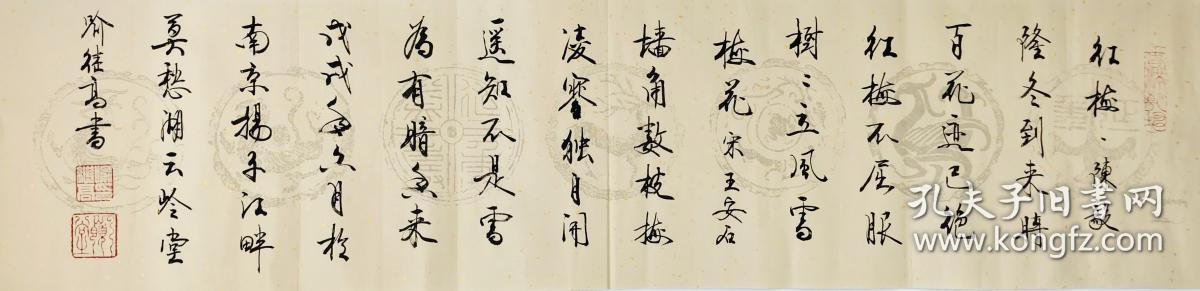 红梅、陳毅
隆冬到来時
百花迹已絶
红梅不屈服
樹々立風雪
梅花 宋王安石
墙角數枝梅
凌寒独自开
遥知不是雪
為有暗香来
戊戌年六月於
南京揚子江畔
莫愁湖云岭堂
喻继高書
孔夫子旧書网
www.kongfz.com